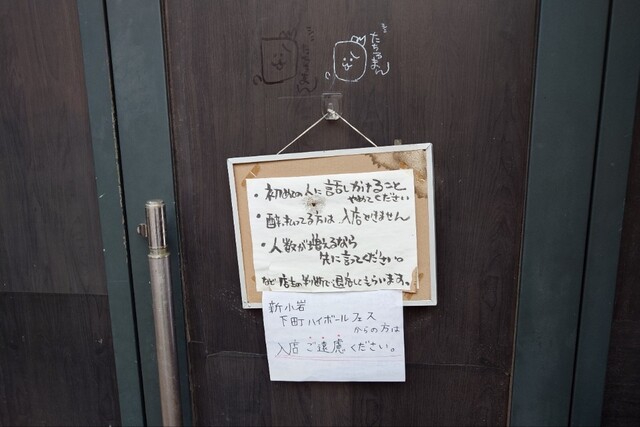 ・初めての人に話しかけること
やめてください
・酔っぱらってる方は入店できません
・人数が増えるなら
先に言ってください。
など店主の判断で退店してもらいます。
新小岩
下町ハイボールフェス
からの方は
入店ご遠慮ください。